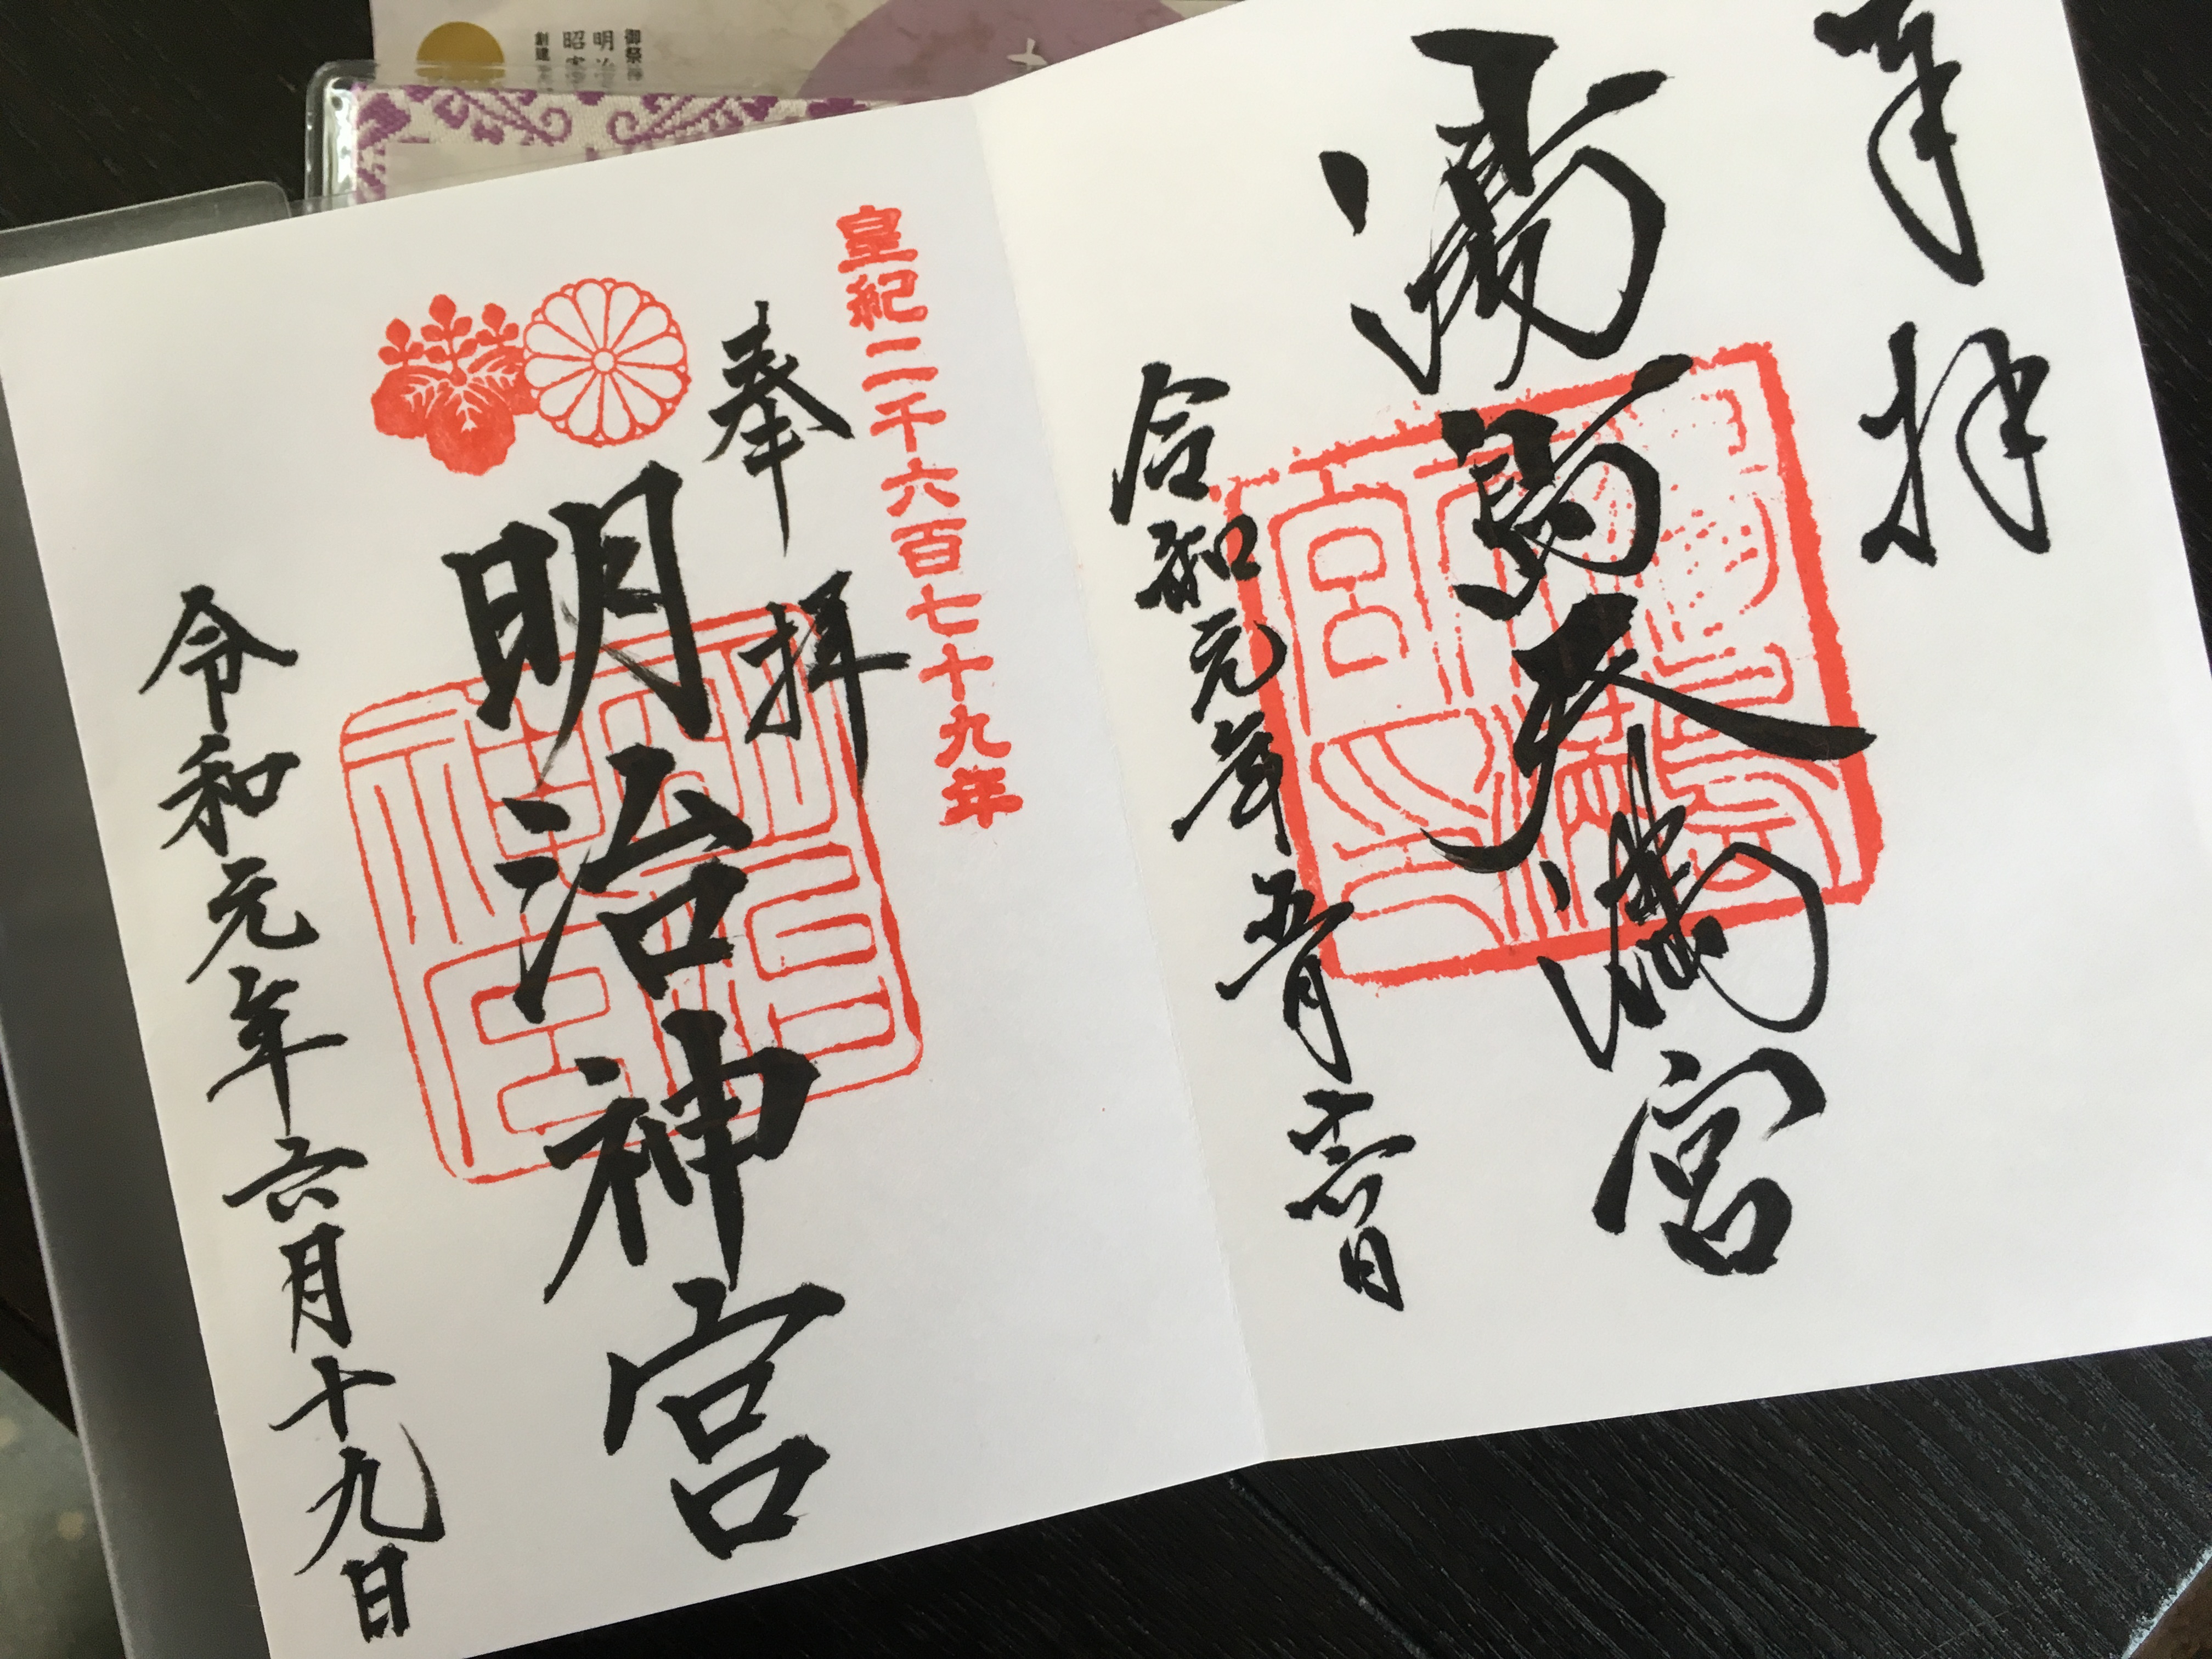 奉拝
湯島天満宮
令和元年五月
皇紀二千六百七十九年
奉拝
明治神宮
令和元年六月十九日
御祭神
明治
昭憲
創建